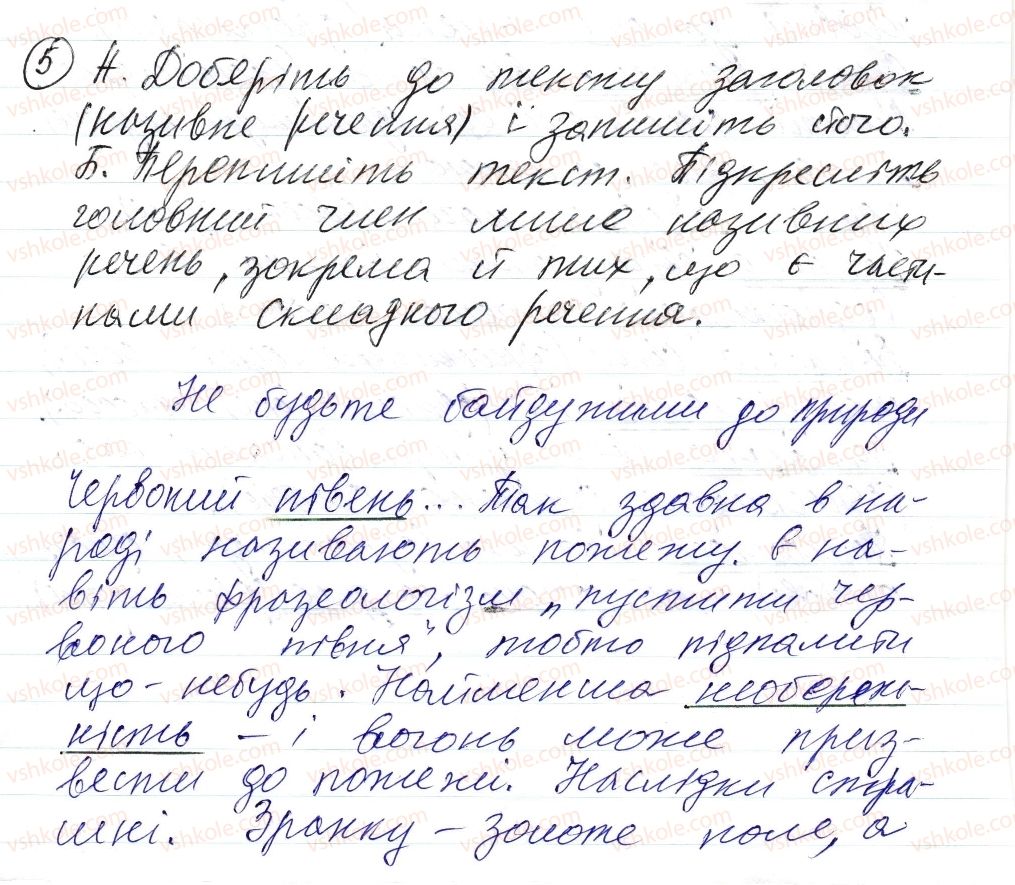 5 А. Доберіть до тексту заголовок
(називне речення) і запишіть його.
Б. Перепишіть текст. Підкресліть
головний член лише називних
речень, зокрема й тих, що є части-
нами складного речення.
Не будьте байдужими до природи
Червоний півень... Так здавна в на-
роді називають пожежу. Є на-
віть фразеологізм „пустити чер-
воного півня", тобто підпалити
що-небудь. Найменша необереж-
ність – і вогонь може приз-
вести до пожежі. Наслідки стра-
шні. Зранку – золоте поле, а